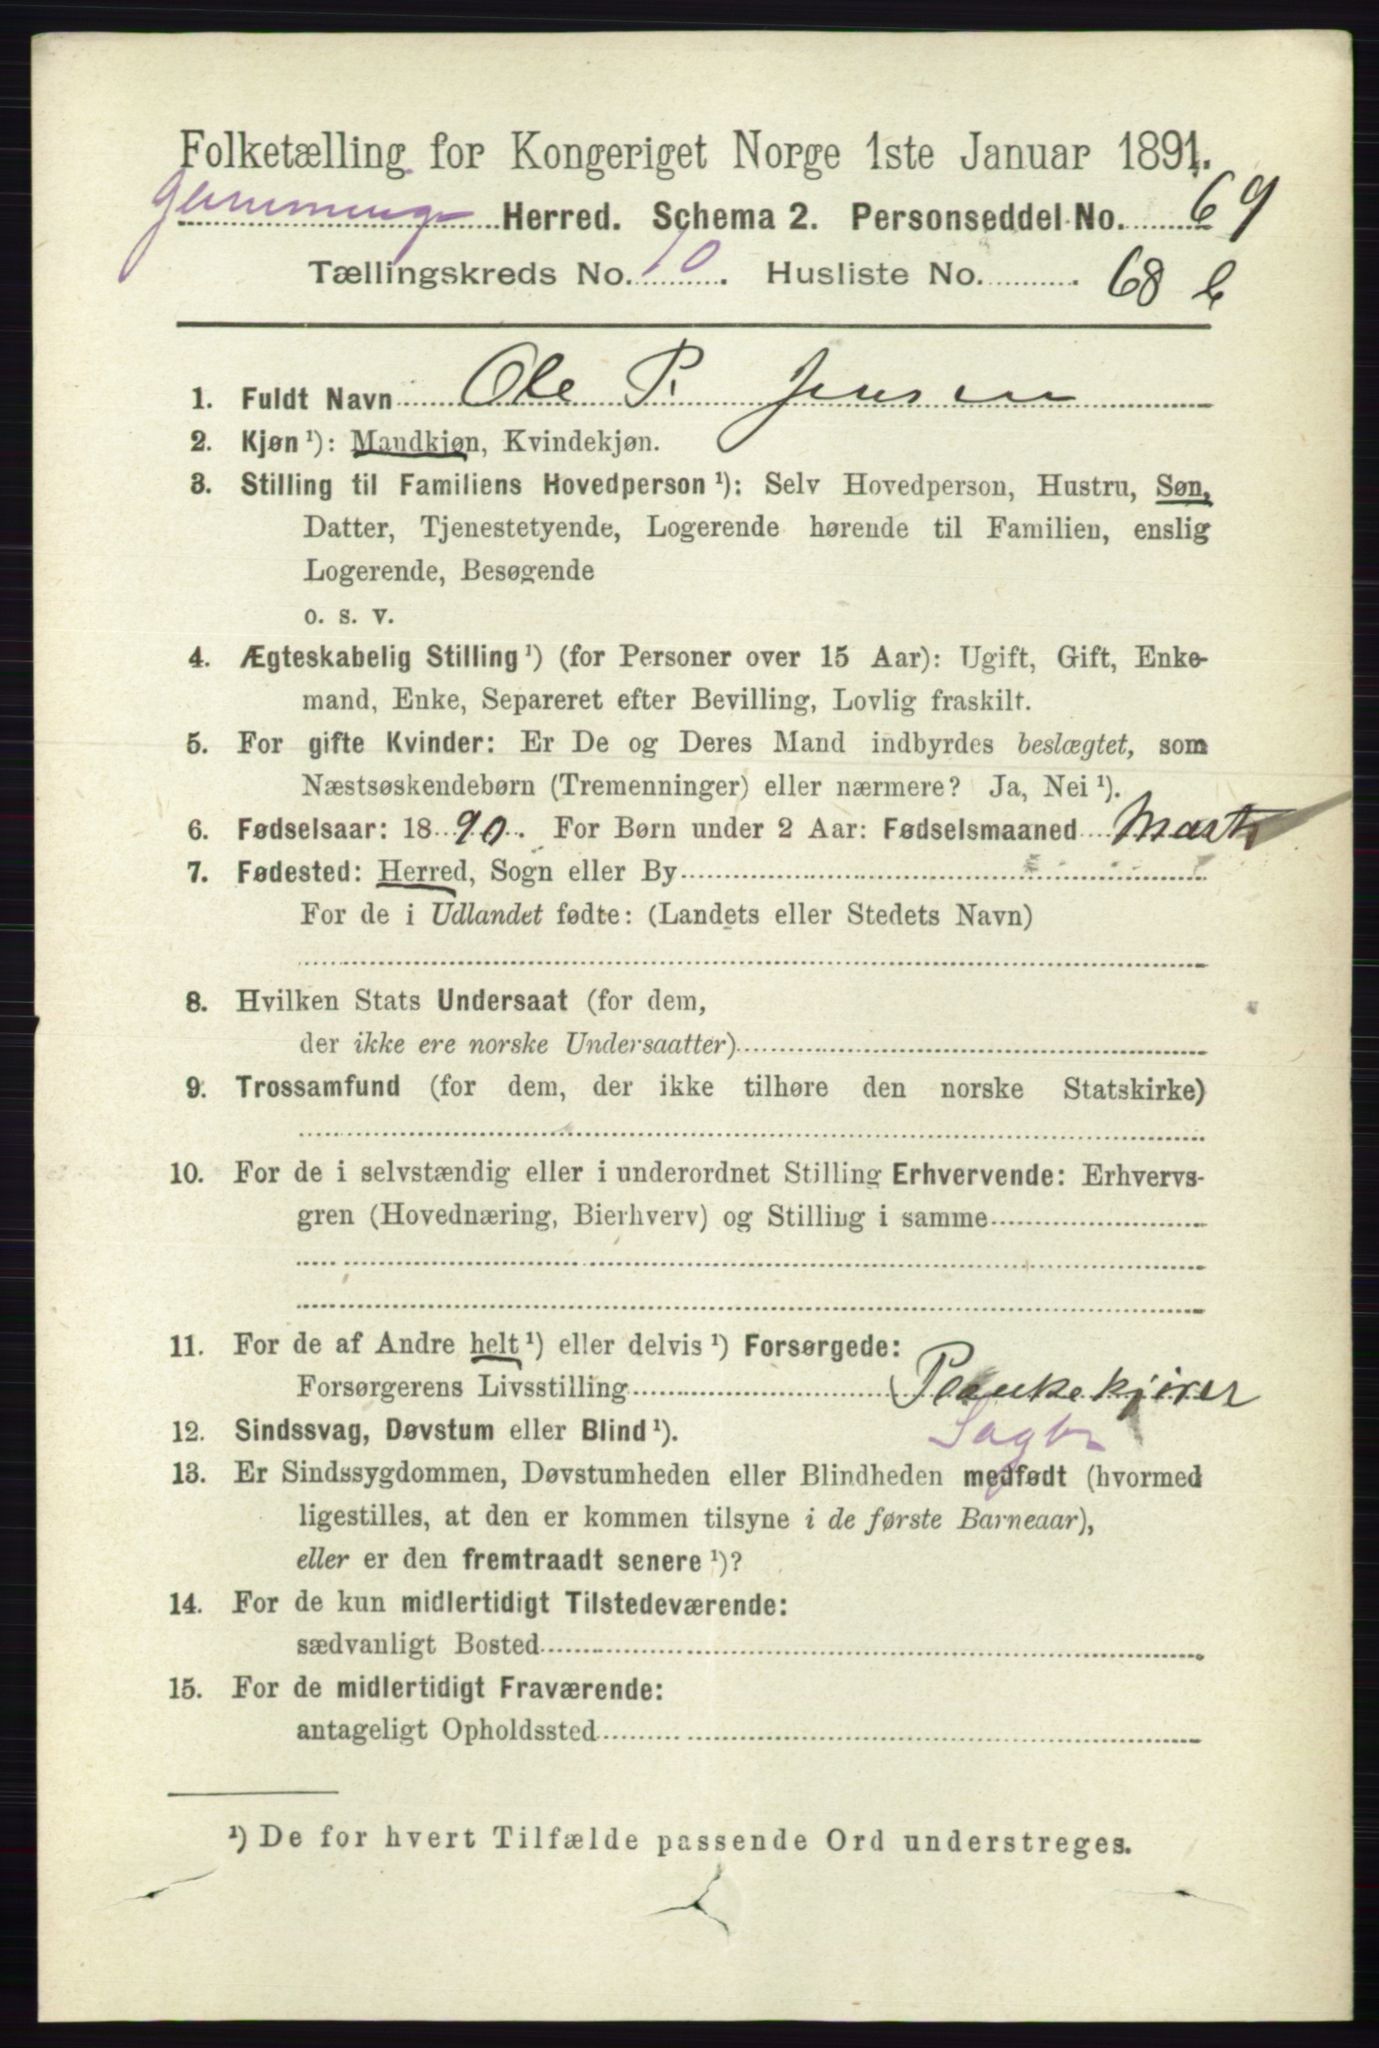 Folketælling for Kongeriget Norge 1ste Januar 1891.
Herred. Schema 2. Personseddel No. 69
Tællingskreds No. 10. Husliste No. 68 b
1. Fuldt Navn Ole P. Jensen
2. Kjøn ¹): Mandkjøn, Kvindekjøn.
3. Stilling til Familiens Hovedperson ¹): Selv Hovedperson, Hustru, Søn,
Datter, Tjenestetyende, Logerende hørende til Familien, enslig
Logerende, Besøgende
o. s. v.
4. Ægteskabelig Stilling ¹) (for Personer over 15 Aar): Ugift, Gift, Enke-
mand, Enke, Separeret efter Bevilling, Lovlig fraskilt.
5. For gifte Kvinder: Er De og Deres Mand indbyrdes beslægtet, som
Næstsøskendebørn (Tremenninger) eller nærmere? Ja, Nei ¹).
6. Fødselsaar: 1890. For Børn under 2 Aar: Fødselsmaaned Marts
7. Fødested: Herred, Sogn eller By
For de i Udlandet fødte: (Landets eller Stedets Navn)
8. Hvilken Stats Undersaat (for dem,
der ikke ere norske Undersaatter)
9. Trossamfund (for dem, der ikke tilhøre den norske Statskirke)
10. For de i selvstændig eller i underordnet Stilling Erhvervende: Erhvervs-
gren (Hovednæring, Bierhverv) og Stilling i samme
11. For de af Andre helt ¹) eller delvis ¹) Forsørgede:
Forsørgerens Livsstilling Plankekjører
12. Sindssvag, Døvstum eller Blind ¹). Sagbr
13. Er Sindssygdommen, Døvstumheden eller Blindheden medfødt (hvormed
ligestilles, at den er kommen tilsyne i de første Barneaar),
eller er den fremtraadt senere ¹)?
14. For de kun midlertidigt Tilstedeværende:
sædvanligt Bosted
15. For de midlertidigt Fraværende:
antageligt Opholdssted
¹) De for hvert Tilfælde passende Ord understreges.